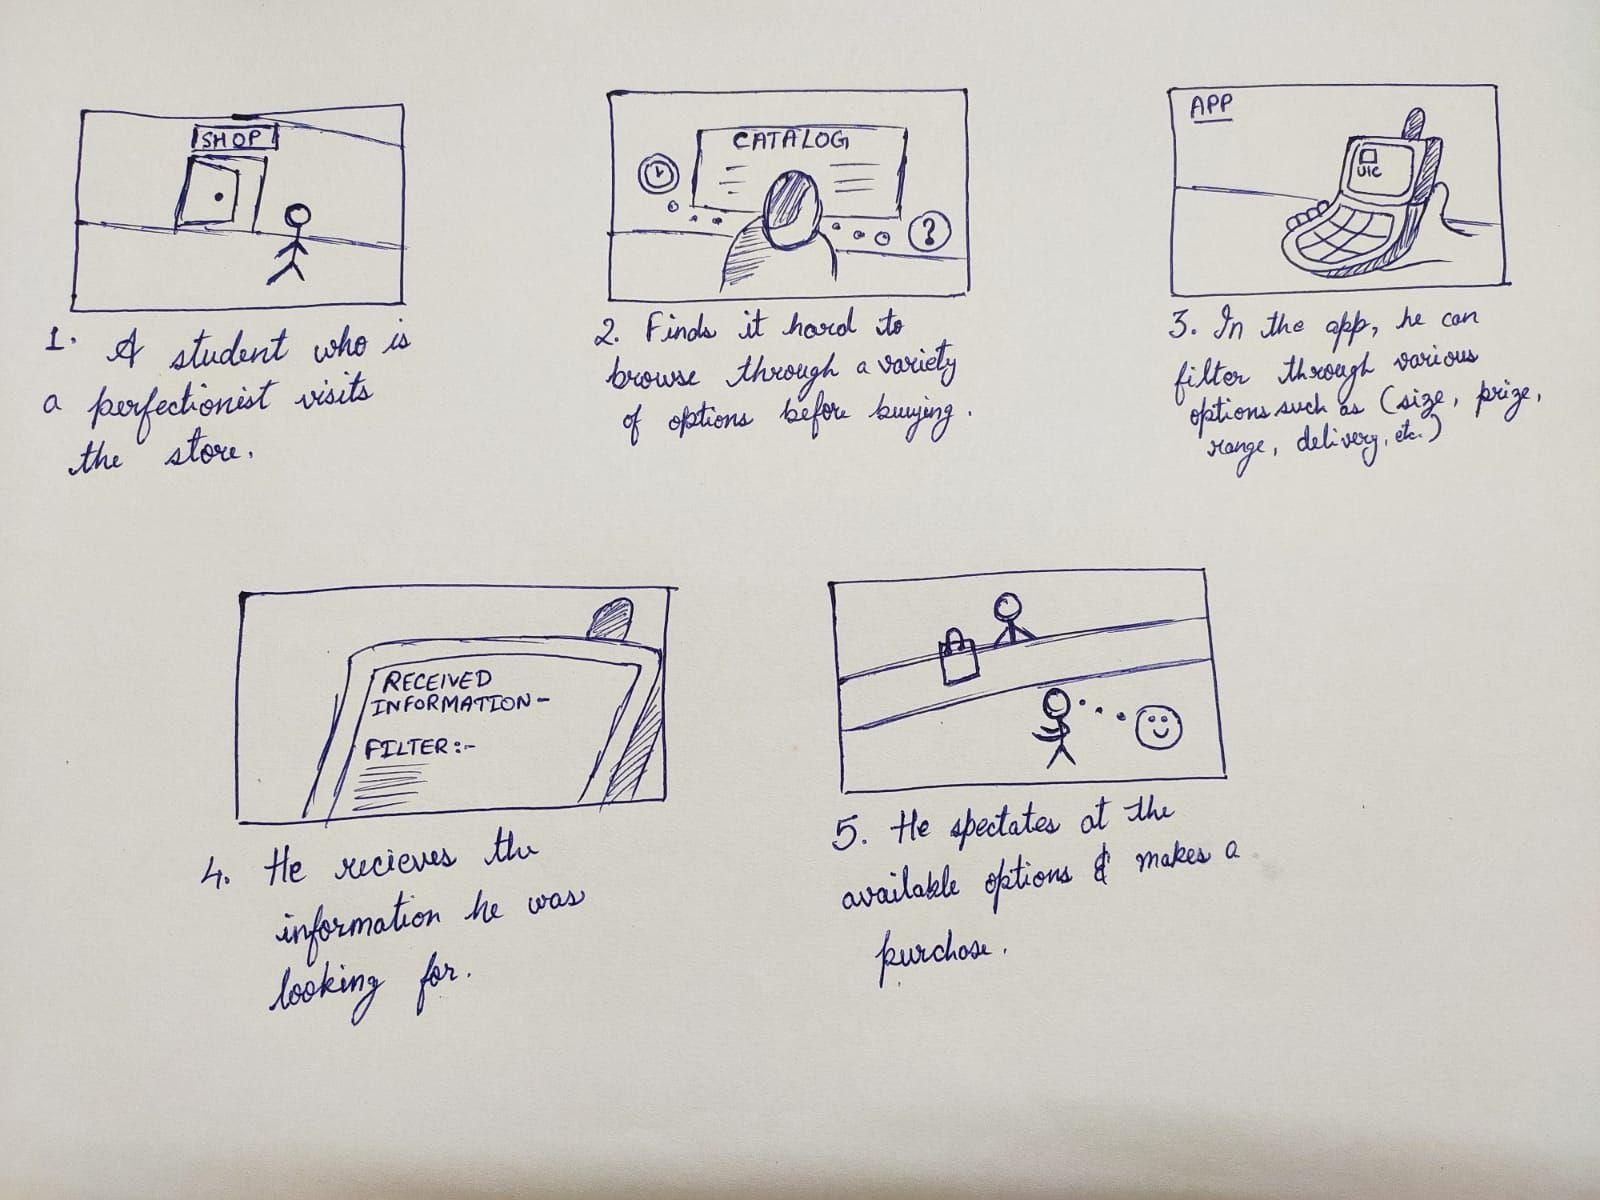 SHOP
1. A student who is
a perfectionist visits
the store.
CATALOG
?
2. Finds it hard to
browse through a variety
of options before buuying.
APP
UIC
3. In the app, he can
filter through various
options such as (size, prize,
range, delivery, etc.)
RECEIVED
INFORMATION-
FILTER:-
4. He recieves the
information he was
looking for.
5. He spectates at the
available options & makes a
purchase.